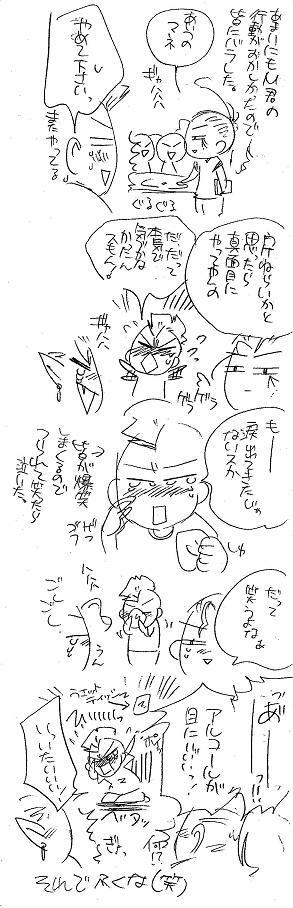 あまりにもM君の
行動がおかしかったので
皆にバラした。
あつの
マネ
ギャハハ
やめて下さいっ
またやってる
ぐるぐる
尿ねらいかと
思ったら
真面目に
やってたの
だ、だって
本気で
気づかな
かったん
スもん。
ギャハハ
ゲラ
ゲラ
もー
涙出てきたじゃ
ないスか
皆が爆笑
しまくるので
つられて笑ったら
泣いた。
しゅ
だって
笑うよな。
ハハハ
うん
ごしごし
ウエットティッシュ
あ゛
アルコールが
目にいいっ!
いったいいい!
ベタッ
ぎょっ
何!?
それで尽くな(笑)